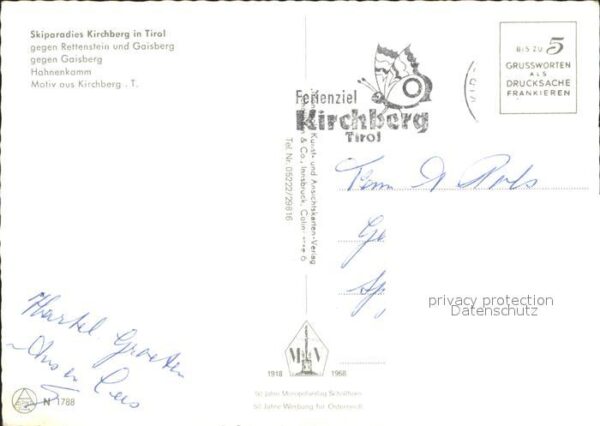 Skiparadies Kirchberg in Tirol
gegen Rettenstein und Gaisberg
gegen Gaisberg
Hahnenkamm
Motiv aus Kirchberg . T.
BIS ZU 5
GRUSSWORTEN
ALS
DRUCKSACHE
FRANKIEREN
Ferienziel
Kirchberg
Tirol
Kunst- und Ansichtskarten-Verlag
& Co., Innsbruck,
Tel. Nr. 05222/29816
Fam
Ge
privacy protection
Datenschutz
Hartel. Groeten
en Cees
M V
1918 1968
50 Jahre Monopolverlag Schöllhorn
50 Jahre Werbung für Österreich
N 1788